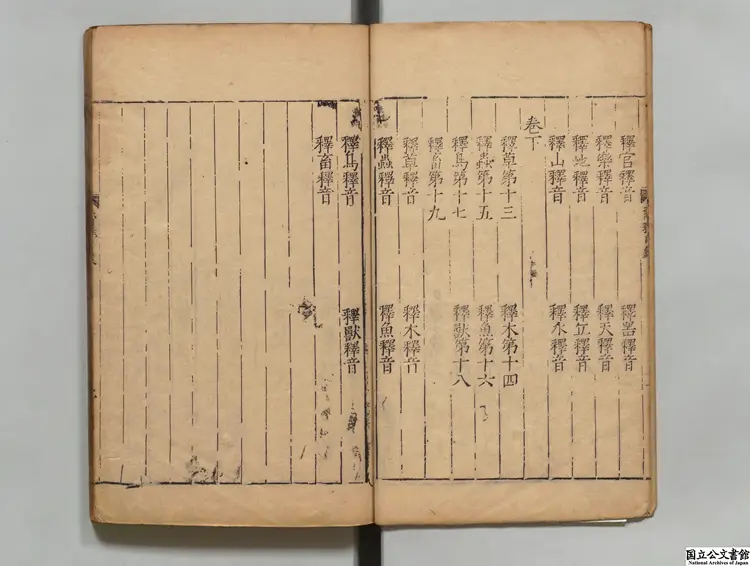 釋宮釋音 釋器釋音
釋樂釋音 釋天釋音
釋地釋音 釋丘釋音
釋山釋音 釋水釋音
卷下
釋草第十三 釋木第十四
釋蟲第十五 釋魚第十六
釋鳥第十七 釋獸第十八
釋畜第十九
釋草釋音 釋木釋音
釋蟲釋音 釋魚釋音
釋鳥釋音 釋獸釋音
釋畜釋音
国立公文書館
National Archives of Japan